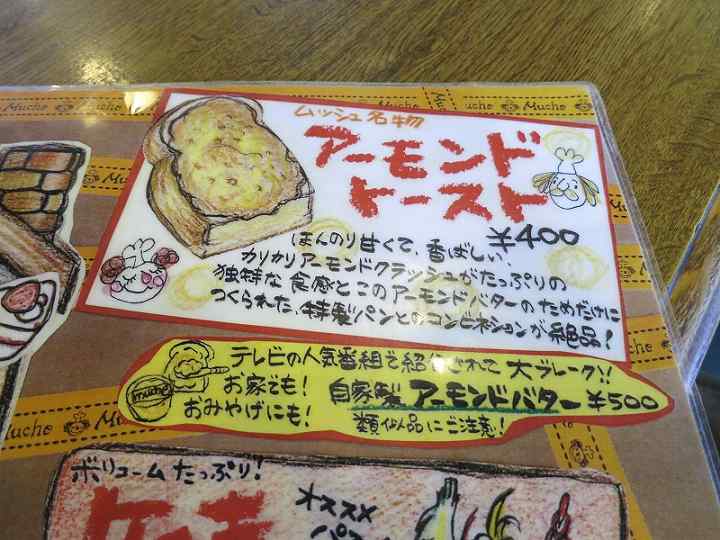 ムッシュ名物
アーモンド
トースト
¥400
ほんのり甘くて、香ばしい、
カリカリアーモンドクラッシュがたっぷりの
独特な食感とこのアーモンドバターのためだけに
つくられた、特製パンとのコンビネションが絶品!
テレビの人気番組で紹介されて大ブレーク!!
お家でも!
おみやげにも!
自家製アーモンドバター¥500
類似品にご注意!
mucho
Mucho
Mucho
Mucho
Mucho
ボリュームたっぷり!
オススメ